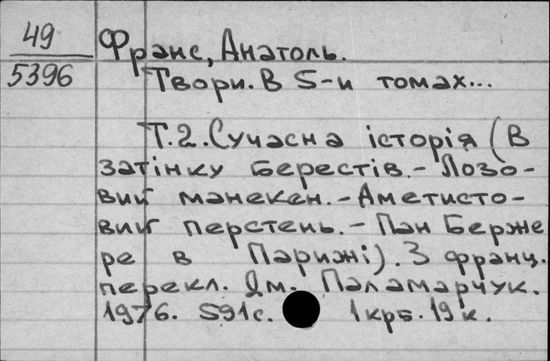 49
5396
Франс, Анатоль.
Твори. В 5-и томах...
Т.2. Сучасна історія (В
затінку берестів.- Лозо-
вий манекен.- Аметисто-
вий перстень.- Пан Берже
ре в Парижі). З франц.
перекл. Дм. Паламарчук.
1976. 591с. 1 крб. 19 к.